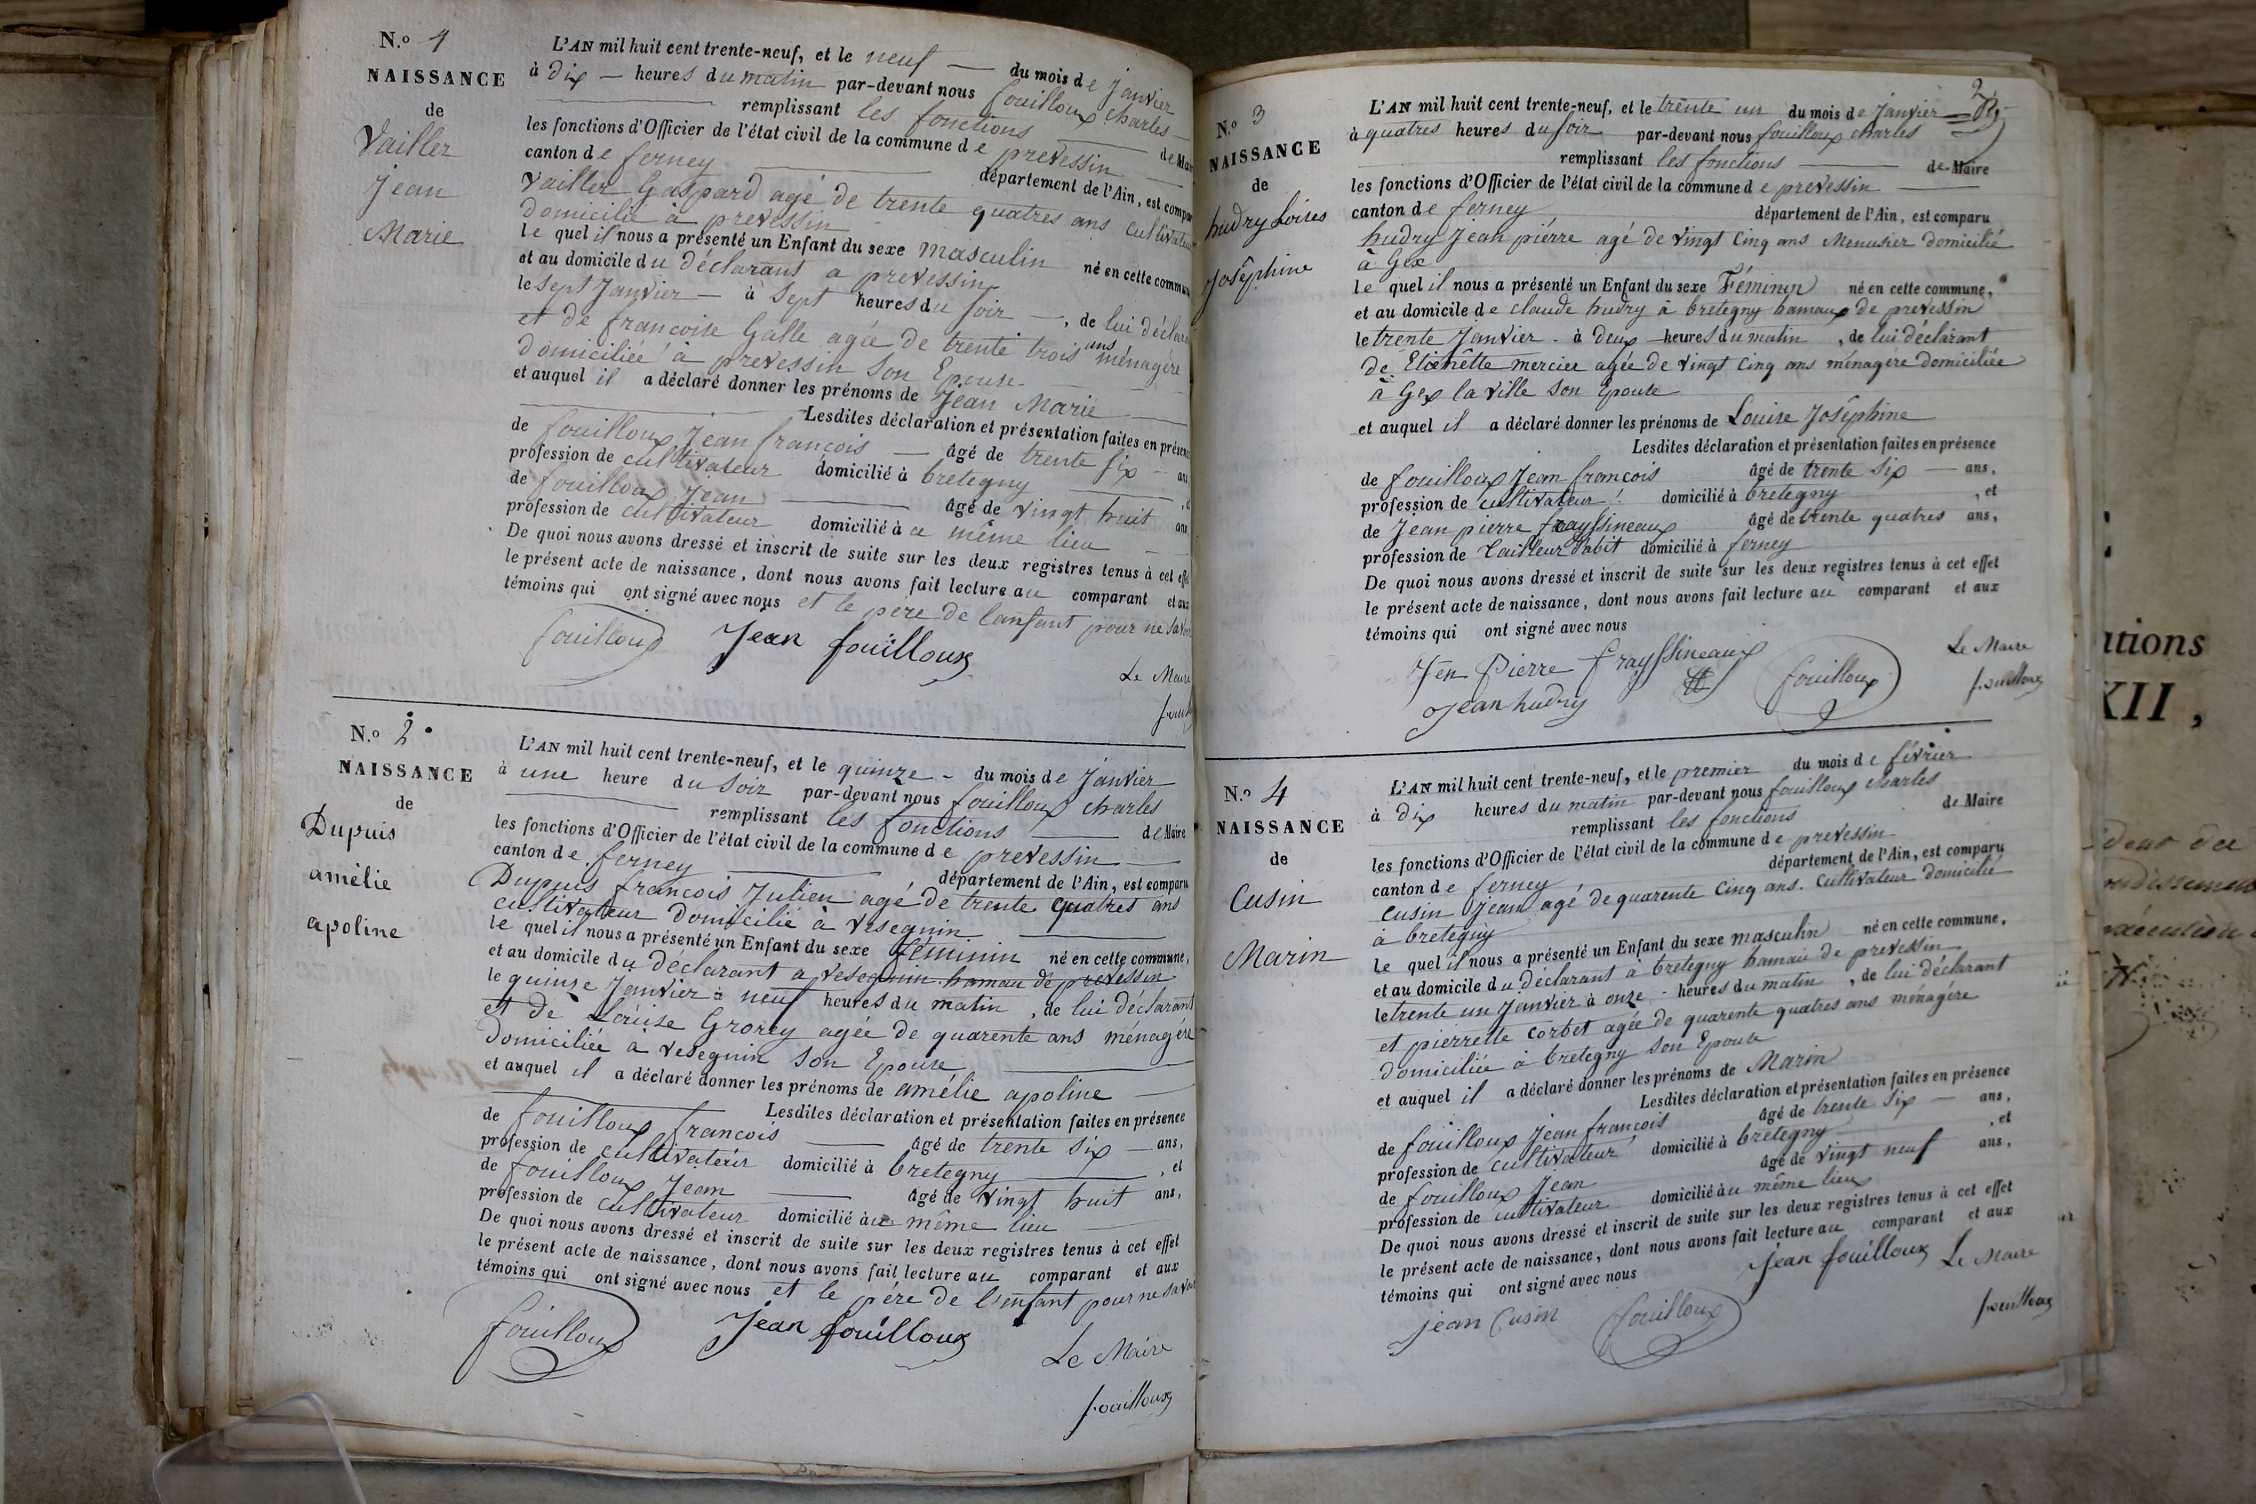 N.o 1
NAISSANCE
de
Vailler
Jean
Marie
L'AN mil huit cent trente-neuf, et le neuf du mois de janvier
à dix heures du matin par-devant nous fouilloux charles
remplissant les fonctions de Mai
les fonctions d'Officier de l'état civil de la commune de prevessin
canton de ferney département de l'Ain, est compar
Vailler Gaspard agé de trente quatres ans cultivateur
domicilié à prevessin
le quel il nous a présenté un Enfant du sexe masculin né en cette commun
et au domicile du déclarant a prevessin
le sept Janvier à sept heures du soir, de lui déclar
et de francoise Galle agée de trente trois ans ménagère
domiciliée à prevessin son Epouse
et auquel il a déclaré donner les prénoms de Jean Marie
Lesdites déclaration et présentation faites en présen
de fouilloux Jean francois âgé de trente six ans
profession de cultivateur domicilié à bretegny
de fouilloux Jean âgé de vingt huit ans
profession de cultivateur domicilié à ce même lieu
De quoi nous avons dressé et inscrit de suite sur les deux registres tenus à cet effet
le présent acte de naissance, dont nous avons fait lecture au comparant et aux
témoins qui ont signé avec nous et le pere de lanfant pour ne savoir
fouilloux Jean fouilloux
Le Maire
fouill
N.o 2
NAISSANCE
de
Dupuis
amélie
apoline
L'AN mil huit cent trente-neuf, et le quinze du mois de janvier
à une heure du soir par-devant nous fouilloux charles
remplissant les fonctions de Maire
les fonctions d'Officier de l'état civil de la commune de prevessin
canton de ferney département de l'Ain, est comparu
Dupuis francois Julien agé de trente quatres ans
cultivateur domicilié à vesegnin
le quel il nous a présenté un Enfant du sexe féminin né en cette commune,
et au domicile du déclarant a vesegnin hamau de prevessin
le quinze Janvier à neuf heures du matin, de lui déclarant
et de Louise Grorey agée de quarente ans ménagère
domiciliée à vesegnin son Epouse
et auquel il a déclaré donner les prénoms de amélie apoline
Lesdites déclaration et présentation faites en présence
de fouilloux francois âgé de trente six ans,
profession de cultivateur domicilié à bretegny, et
de fouilloux Jean âgé de vingt huit ans,
profession de cultivateur domicilié à ce même lieu
De quoi nous avons dressé et inscrit de suite sur les deux registres tenus à cet effet
le présent acte de naissance, dont nous avons fait lecture au comparant et aux
témoins qui ont signé avec nous et le père de l'enfant pour ne savoir
fouilloux Jean fouilloux
Le Maire
fouilloux
2
N.o 3
NAISSANCE
de
hudry Loises
Joséphine
L'AN mil huit cent trente-neuf, et le trente un du mois de janvier
à quatres heures du soir par-devant nous fouilloux charles
remplissant les fonctions de Maire
les fonctions d'Officier de l'état civil de la commune de prevessin
canton de ferney département de l'Ain, est comparu
hudry Jean piérre agé de vingt cinq ans Menusier domicilié
à Gex
le quel il nous a présenté un Enfant du sexe Féminen né en cette commune,
et au domicile de claude hudry à bretegny hamaux de prevessin
le trente Janvier à deux heures du matin, de lui déclarant
de Etienêtte mercier agée de vingt cinq ans ménagère domiciliée
à Gex la ville son Epouse
et auquel il a déclaré donner les prénoms de Louise Joséphine
Lesdites déclaration et présentation faites en présence
de fouilloux Jean francois âgé de trente six ans,
profession de cultivateur domicilié à bretegny, et
de Jean pierre frayssineaux âgé de trente quatres ans,
profession de tailleur dabit domicilié à ferney
De quoi nous avons dressé et inscrit de suite sur les deux registres tenus à cet effet
le présent acte de naissance, dont nous avons fait lecture au comparant et aux
témoins qui ont signé avec nous
Jen Pierre frayssineaux fouilloux Le Maire
Jean hudry fouilloux
N.o 4
NAISSANCE
de
Cusin
Marin
L'AN mil huit cent trente-neuf, et le premier du mois de février
à dix heures du matin par-devant nous fouilloux charles
remplissant les fonctions de Maire
les fonctions d'Officier de l'état civil de la commune de prevessin
canton de ferney département de l'Ain, est comparu
cusin Jean agé de quarente cinq ans. cultivateur domicilié
à bretegny
le quel il nous a présenté un Enfant du sexe masculin né en cette commune,
et au domicile du déclarant à bretegny hamau de prevessin
le trente un Janvier à onze heures du matin, de lui déclarant
et pierrette corbet agée de quarente quatres ans ménagère
domiciliée à bretegny son Epouse
et auquel il a déclaré donner les prénoms de Marin
Lesdites déclaration et présentation faites en présence
de fouilloux Jean francois âgé de trente six ans,
profession de cultivateur domicilié à bretegny, et
de fouilloux Jean âgé de vingt neuf ans,
profession de cultivateur domicilié au même lieux
De quoi nous avons dressé et inscrit de suite sur les deux registres tenus à cet effet
le présent acte de naissance, dont nous avons fait lecture au comparant et aux
témoins qui ont signé avec nous Jean fouilloux Le Maire
jean Cusin fouilloux fouilloux
ations
XII,